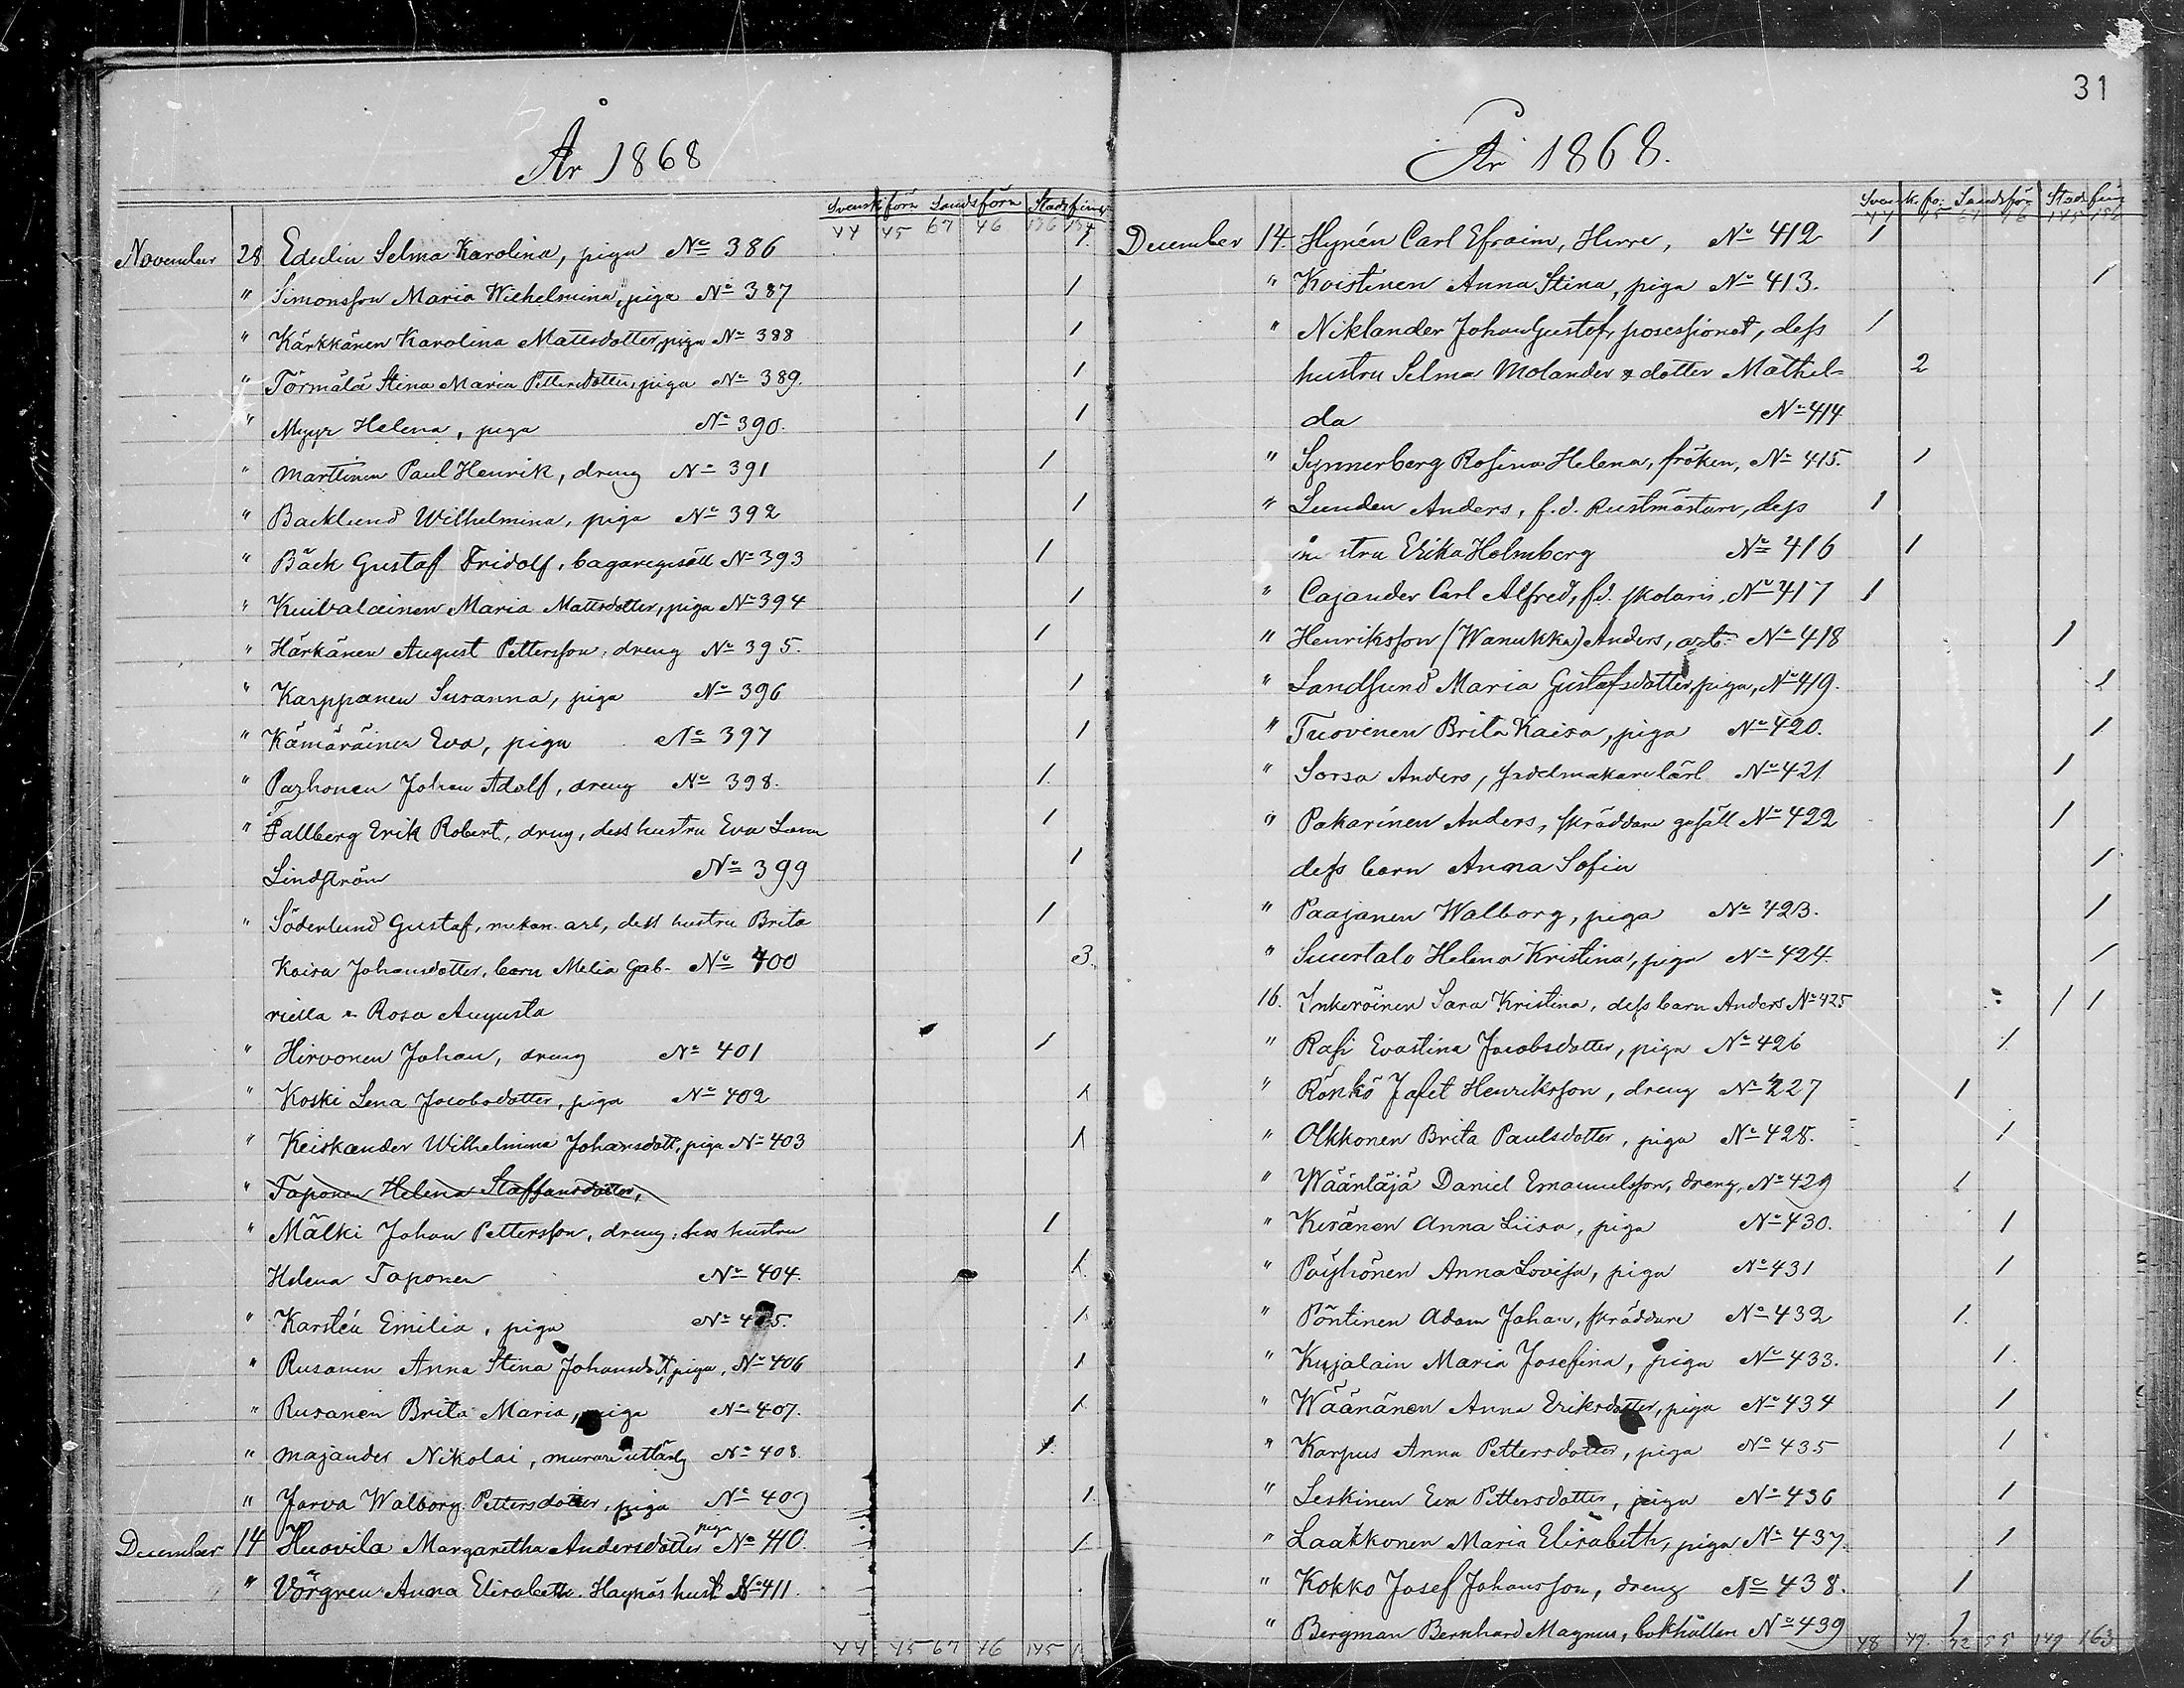 31
År 1868
Svensk förs Landsförs Stads fins
44 45 67 46 136 154
November 28 Edulin Selma Karolina, piga No 386 1
" Simonsson Maria Wilhelmina, piga No 387 1
" Kärkkänen Karolina Mattsdotter, piga No 388 1
" Törmälä Stina Maria Pettersdotter, piga No 389. 1
" Myyr Helena, piga No 390. 1
" Martinen Paul Henrik, dreng No 391 1
" Backlund Wilhelmina, piga No 392 1
" Bäck Gustaf Fridolf, bagaregesäll No 393 1
" Kuivalainen Maria Mattsdotter, piga No 394 1
" Härkänen August Pettersson, dreng No 395. 1
" Karppanen Susanna, piga No 396 1
" Kämäräinen Eva, piga No 397 1
" Pazhonen Johan Adolf, dreng No 398. 1
" Fallberg Erik Robert, dreng, dess hustru Eva Lovisa 1
Lindström No 399 1
" Söderlund Gustaf, mekan. arb, dess hustru Brita 1
Kaisa Johansdotter, barn Melia Gab- No 400 3
riella & Rosa Augusta
" Hirvonen Johan, dreng No 401 1
" Koski Lena Jacobsdotter, piga No 402 1
" Keiskander Wilhelmina Johansdott, piga No 403 1
" Taponen Helena Staffansdotter,
" Mälki Johan Pettersson, dreng, dess hustru 1
Helena Taponen No 404. 1
" Karstén Emilia, piga No 405. 1
" Rusanen Anna Stina Johansdott, piga, No 406 1
" Rusanen Brita Maria, piga No 407. 1
" Majander Nikolai, murare utlärly No 408. 1
" Jarva Walborg Pettersdotter, piga No 409 1
December 14 Huovila Margaretha Andersdotter piga No 410. 1
" Vörgren Anna Elisabeth. Haynäs hust No 411.
44 45 67 46 145 1
År 1868.
Svensk. fö. Landsför Stads fins
44 45 67 46 145 156
December 14. Hynén Carl Efraim, Herre, No 412 1
" Koistinen Anna Stina, piga No 413. 1
" Niklander Johan Gustaf, posessionat, dess 1
hustru Selma Molander & dotter Mathil- 2
da No 414
" Synnerberg Rosina Helena, fröken, No 415. 1
" Lunden Anders, f.d. Rustmästare, dess 1
hustru Erika Holmberg No 416 1
" Cajander Carl Alfred, fd. skolaris, No 417 1
" Henriksson (Wanukka) Anders, arb. No 418 1
" Landsund Maria Gustafsdotter, piga, No 419. 1
" Tuovinen Brita Kaisa, piga No 420. 1
" Sorsa Anders, sadelmakarelärl No 421 1
" Pakarinen Anders, skräddare gesäll No 422 1
dess barn Anna Sofia 1
" Paajanen Walborg, piga No 423. 1
" Suurtalo Helena Kristina, piga No 424. 1
16. Inkeröinen Sara Kristina, dess barn Anders No 425 1 1
" Rasi Evastina Jacobsdotter, piga No 426 1
" Rönkö Jafet Henriksson, dreng No 427 1
" Olkkonen Brita Paulsdotter, piga No 428. 1
" Wääntäjä Daniel Emanuelsson, dreng, No 429 1
" Keränen Anna Liisa, piga No 430. 1
" Pöyhönen Anna Lovisa, piga No 431 1
" Pöntinen Adam Johan, skräddare No 432 1
" Kujalain Maria Josefina, piga No 433. 1
" Wäänänen Anna Eriksdotter, piga No 434 1
" Karpus Anna Pettersdotter, piga No 435 1
" Leskinen Eva Pettersdotter, piga No 436 1
" Laakkonen Maria Elisabeth, piga No 437 1
" Kokko Josef Johansson, dreng No 438. 1
" Bergman Bernhard Magnus, bokhållare No 439 1
48 49 72 55 149 163